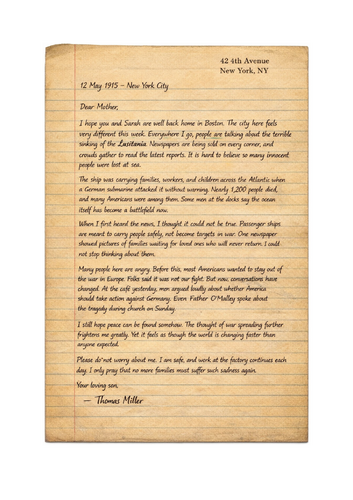 42 4th Avenue
New York, NY
12 May 1915 – New York City
Dear Mother,
I hope you and Sarah are well back home in Boston. The city here feels
very different this week. Everywhere I go, people are talking about the terrible
sinking of the Lusitania. Newspapers are being sold on every corner, and
crowds gather to read the latest reports. It is hard to believe so many innocent
people were lost at sea.
The ship was carrying families, workers, and children across the Atlantic when
a German submarine attacked it without warning. Nearly 1,200 people died,
and many Americans were among them. Some men at the docks say the ocean
itself has become a battlefield now.
When I first heard the news, I thought it could not be true. Passenger ships
are meant to carry people safely, not become targets in war. One newspaper
showed pictures of families waiting for loved ones who will never return. I could
not stop thinking about them.
Many people here are angry. Before this, most Americans wanted to stay out of
the war in Europe. Folks said it was not our fight. But now, conversations have
changed. At the café yesterday, men argued loudly about whether America
should take action against Germany. Even Father O'Malley spoke about
the tragedy during church on Sunday.
I still hope peace can be found somehow. The thought of war spreading further
frightens me greatly. Yet it feels as though the world is changing faster than
anyone expected.
Please do not worry about me. I am safe, and work at the factory continues each
day. I only pray that no more families must suffer such sadness again.
Your loving son,
— Thomas Miller